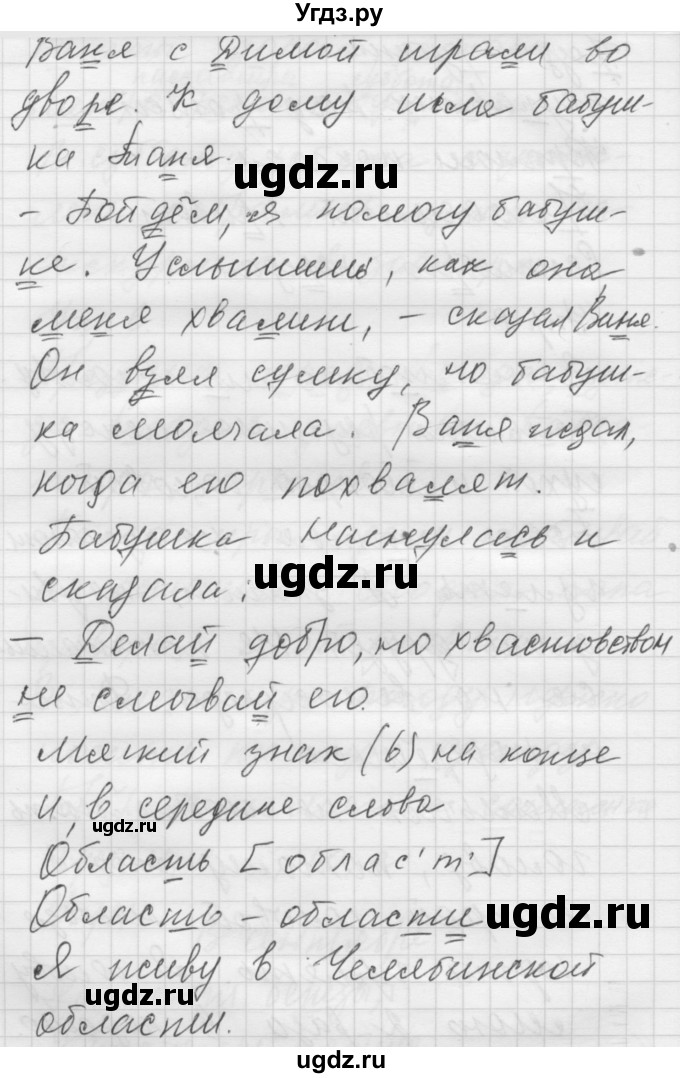 Угдз.ру
Ваня с Димой играли во
дворе. К дому шла бабуш-
ка Таня.
ugdz.ru
- Пойдём, я помогу бабуш-
ке. Услышишь, как она
меня хвалит, - сказал Ваня.
Он взял сумку, но бабуш-
ка молчала. Ваня ждал,
когда его похвалят.
Бабушка нагнулась и
ugdz.ru
сказала:
- Делай добро, но хвастовством
не смывай его.
Мягкий знак (ь) на конце
и в середине слова
ugdz.ru
Область [облас'т']
Область - области
ugdz.ru
Я живу в Челябинской
ugdz.ru
области.
ugdz.ru